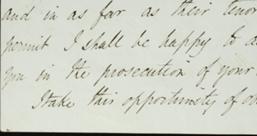 and in as far as their tenor
permit I shall be happy to a
you in the prosecution of your
I take this opportunity of